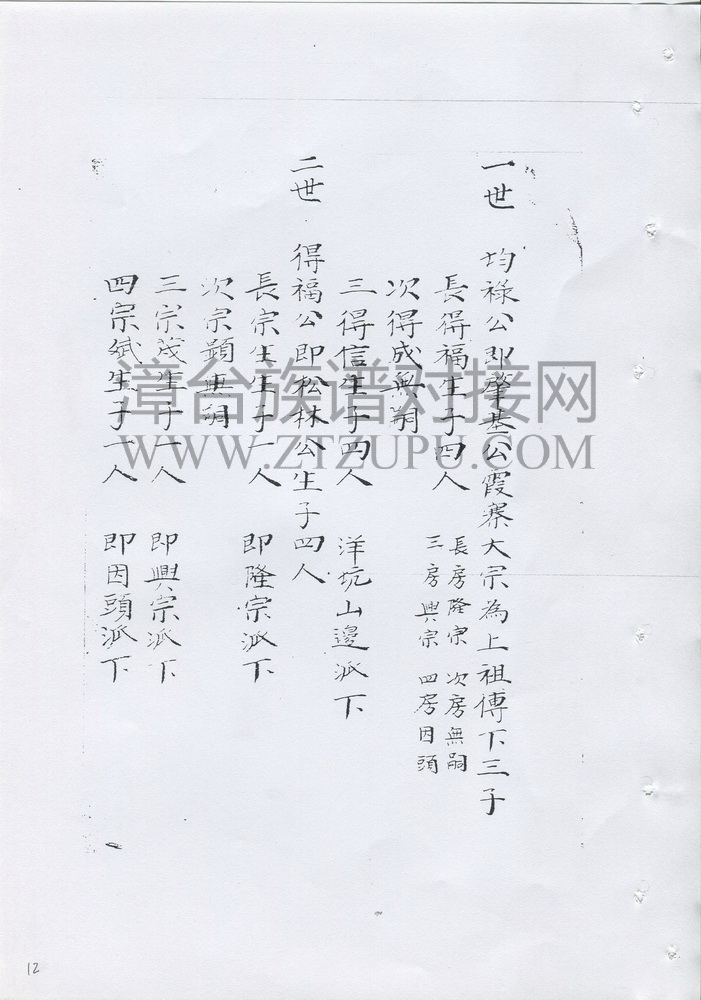 一世 均祿公即肇基公霞寨大宗為上祖傳下三子
長得福生子四人 長房隆宗 次房無嗣
三房興宗 四房因頭
次得成無嗣
三得信生子四人 洋坑山邊派下
二世 得福公即松林公生子四人
長宗生生子一人 即隆宗派下
次宗顯無嗣
三宗茂生子一人 即興宗派下
四宗斌生子一人 即因頭派下
漳台族谱对接网
WWW.ZTZUPU.COM
12